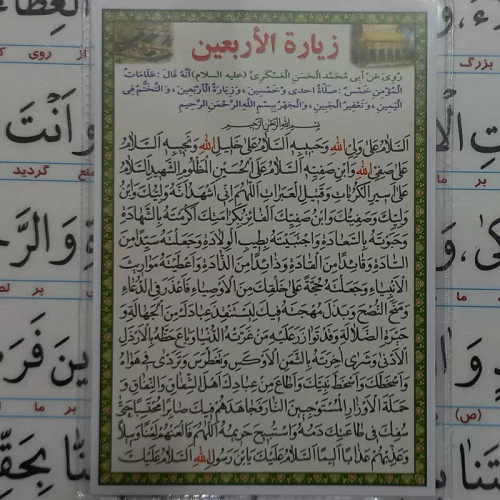 زيارة الأربعين
رُوِيَ عَنْ أَبِي مُحَمَّدٍ الْحَسَنِ الْعَسْكَرِيِّ (عليه السلام) أَنَّهُ قَالَ: عَلَامَاتُ
الْمُؤْمِنِ خَمْسٌ: صَلَاةُ احدى وَخَمْسِينَ، وَزِيَارَةُ الْأَرْبَعِينَ، وَالتَّخَتُّمُ فِي
الْيَمِينِ، وَتَعْفِيرُ الْجَبِينِ، وَالْجَهْرُ بِبِسْمِ اللَّهِ الرَّحْمَنِ الرَّحِيمِ
بِسْمِ اللهِ الرَّحْمٰنِ الرَّحِيمِ
اَلسَّلَامُ عَلَى وَلِيِّ اللهِ وَحَبِيبِهِ اَلسَّلَامُ عَلَى خَلِيلِ اللهِ وَنَجِيبِهِ اَلسَّلَامُ
عَلَى صَفِيِّ اللهِ وَابْنِ صَفِيِّهِ اَلسَّلَامُ عَلَى الْحُسَيْنِ الْمَظْلُومِ الشَّهِيدِ اَلسَّلَامُ
عَلَى اَسِيرِ الْكُرُبَاتِ وَقَتِيلِ الْعَبَرَاتِ اَللّٰهُمَّ اِنِّي اَشْهَدُ اَنَّهُ وَلِيُّكَ وَابْنُ
وَلِيِّكَ وَصَفِيُّكَ وَابْنُ صَفِيِّكَ الْفَائِزُ بِكَرَامَتِكَ اَكْرَمْتَهُ بِالشَّهَادَةِ
وَحَبَوْتَهُ بِالسَّعَادَةِ وَاجْتَبَيْتَهُ بِطِيبِ الْوِلَادَةِ وَجَعَلْتَهُ سَيِّدًا مِنَ
السَّادَةِ وَقَائِدًا مِنَ الْقَادَةِ وَذَائِدًا مِنَ الذَّادَةِ وَاَعْطَيْتَهُ مَوَارِيثَ
الْاَنْبِيَاءِ وَجَعَلْتَهُ حُجَّةً عَلَى خَلْقِكَ مِنَ الْاَوْصِيَاءِ فَاَعْذَرَ فِي الدُّعَاءِ
وَمَنَحَ النُّصْحَ وَبَذَلَ مُهْجَتَهُ فِيكَ لِيَسْتَنْقِذَ عِبَادَكَ مِنَ الْجَهَالَةِ وَ
حَيْرَةِ الضَّلَالَةِ وَقَدْ تَوَازَرَ عَلَيْهِ مَنْ غَرَّتْهُ الدُّنْيَا وَبَاعَ حَظَّهُ بِالْاَرْذَلِ
الْاَدْنَى وَشَرَى آخِرَتَهُ بِالثَّمَنِ الْاَوْكَسِ وَتَغَطْرَسَ وَتَرَدَّى فِي هَوَاهُ
وَاَسْخَطَكَ وَاَسْخَطَ نَبِيَّكَ وَاَطَاعَ مِنْ عِبَادِكَ اَهْلَ الشِّقَاقِ وَالنِّفَاقِ وَ
حَمَلَةَ الْاَوْزَارِ الْمُسْتَوْجِبِينَ النَّارَ فَجَاهَدَهُمْ فِيكَ صَابِرًا مُحْتَسِبًا حَتَّى
سُفِكَ فِي طَاعَتِكَ دَمُهُ وَاسْتُبِيحَ حَرِيمُهُ اَللّٰهُمَّ فَالْعَنْهُمْ لَعْنًا وَبِيلًا
وَعَذِّبْهُمْ عَذَابًا اَلِيمًا اَلسَّلَامُ عَلَيْكَ يَابْنَ رَسُولِ اللهِ اَلسَّلَامُ عَلَيْكَ
بزرگ
از روی
وَاَنْتَ
گردید